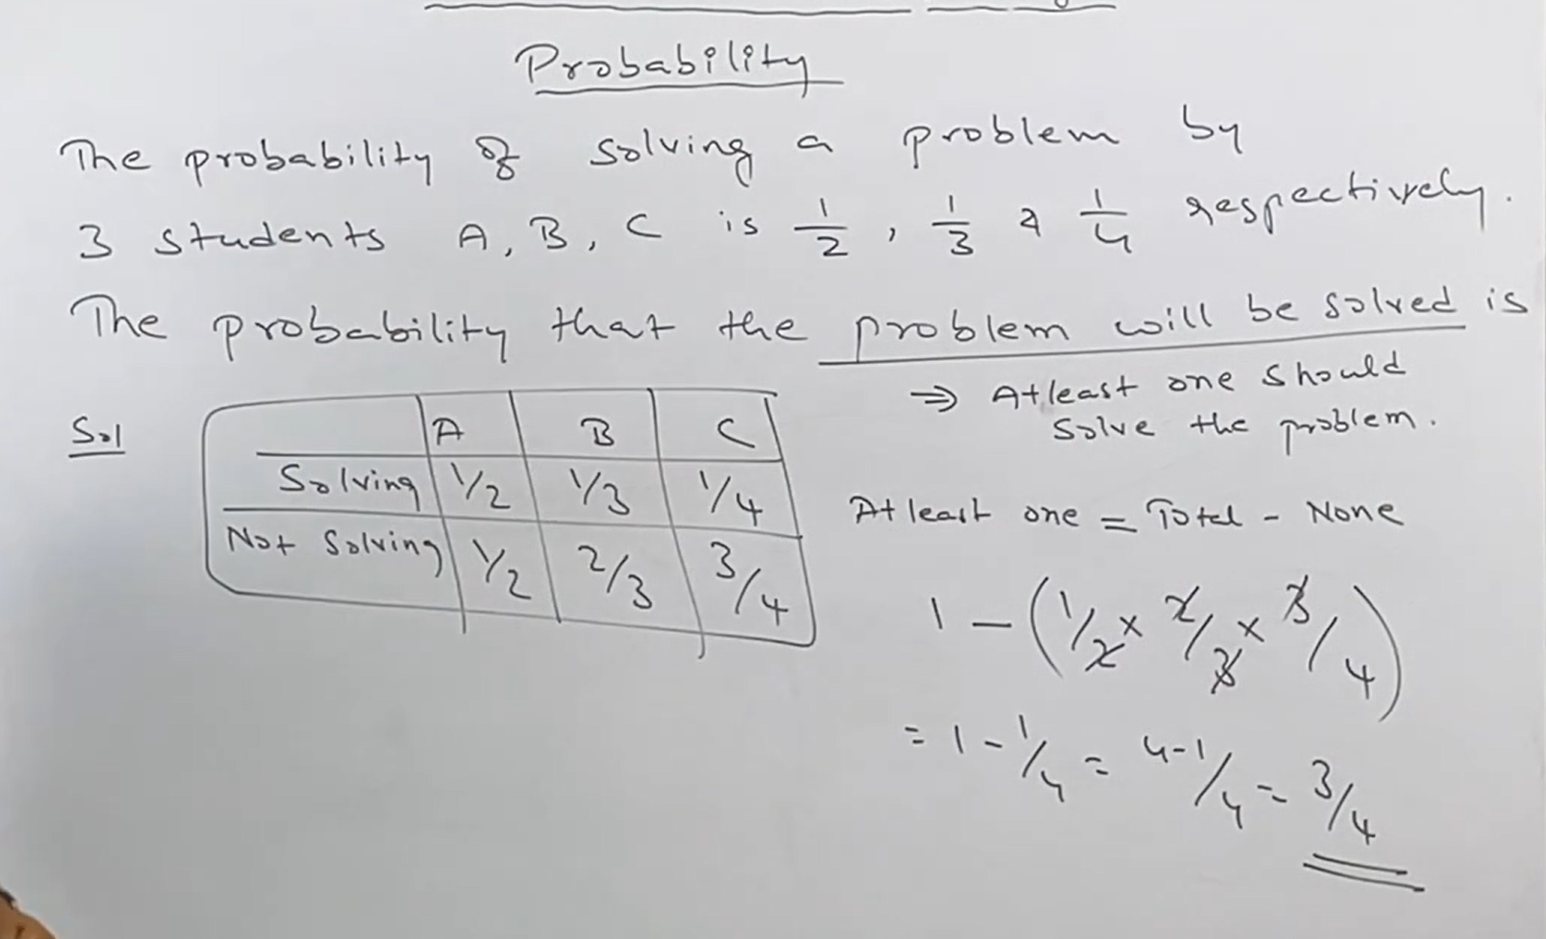 Probability
The probability of solving a problem by
3 students A, B, C is 1/2, 1/3 & 1/4 respectively.
The probability that the problem will be solved is
⇒ Atleast one should
solve the problem.
Sol
A B C
Solving 1/2 1/3 1/4
Not Solving 1/2 2/3 3/4
Atleast one = Total - None
1 - (1/2 x 2/3 x 3/4)
= 1 - 1/4 = 4-1/4 = 3/4